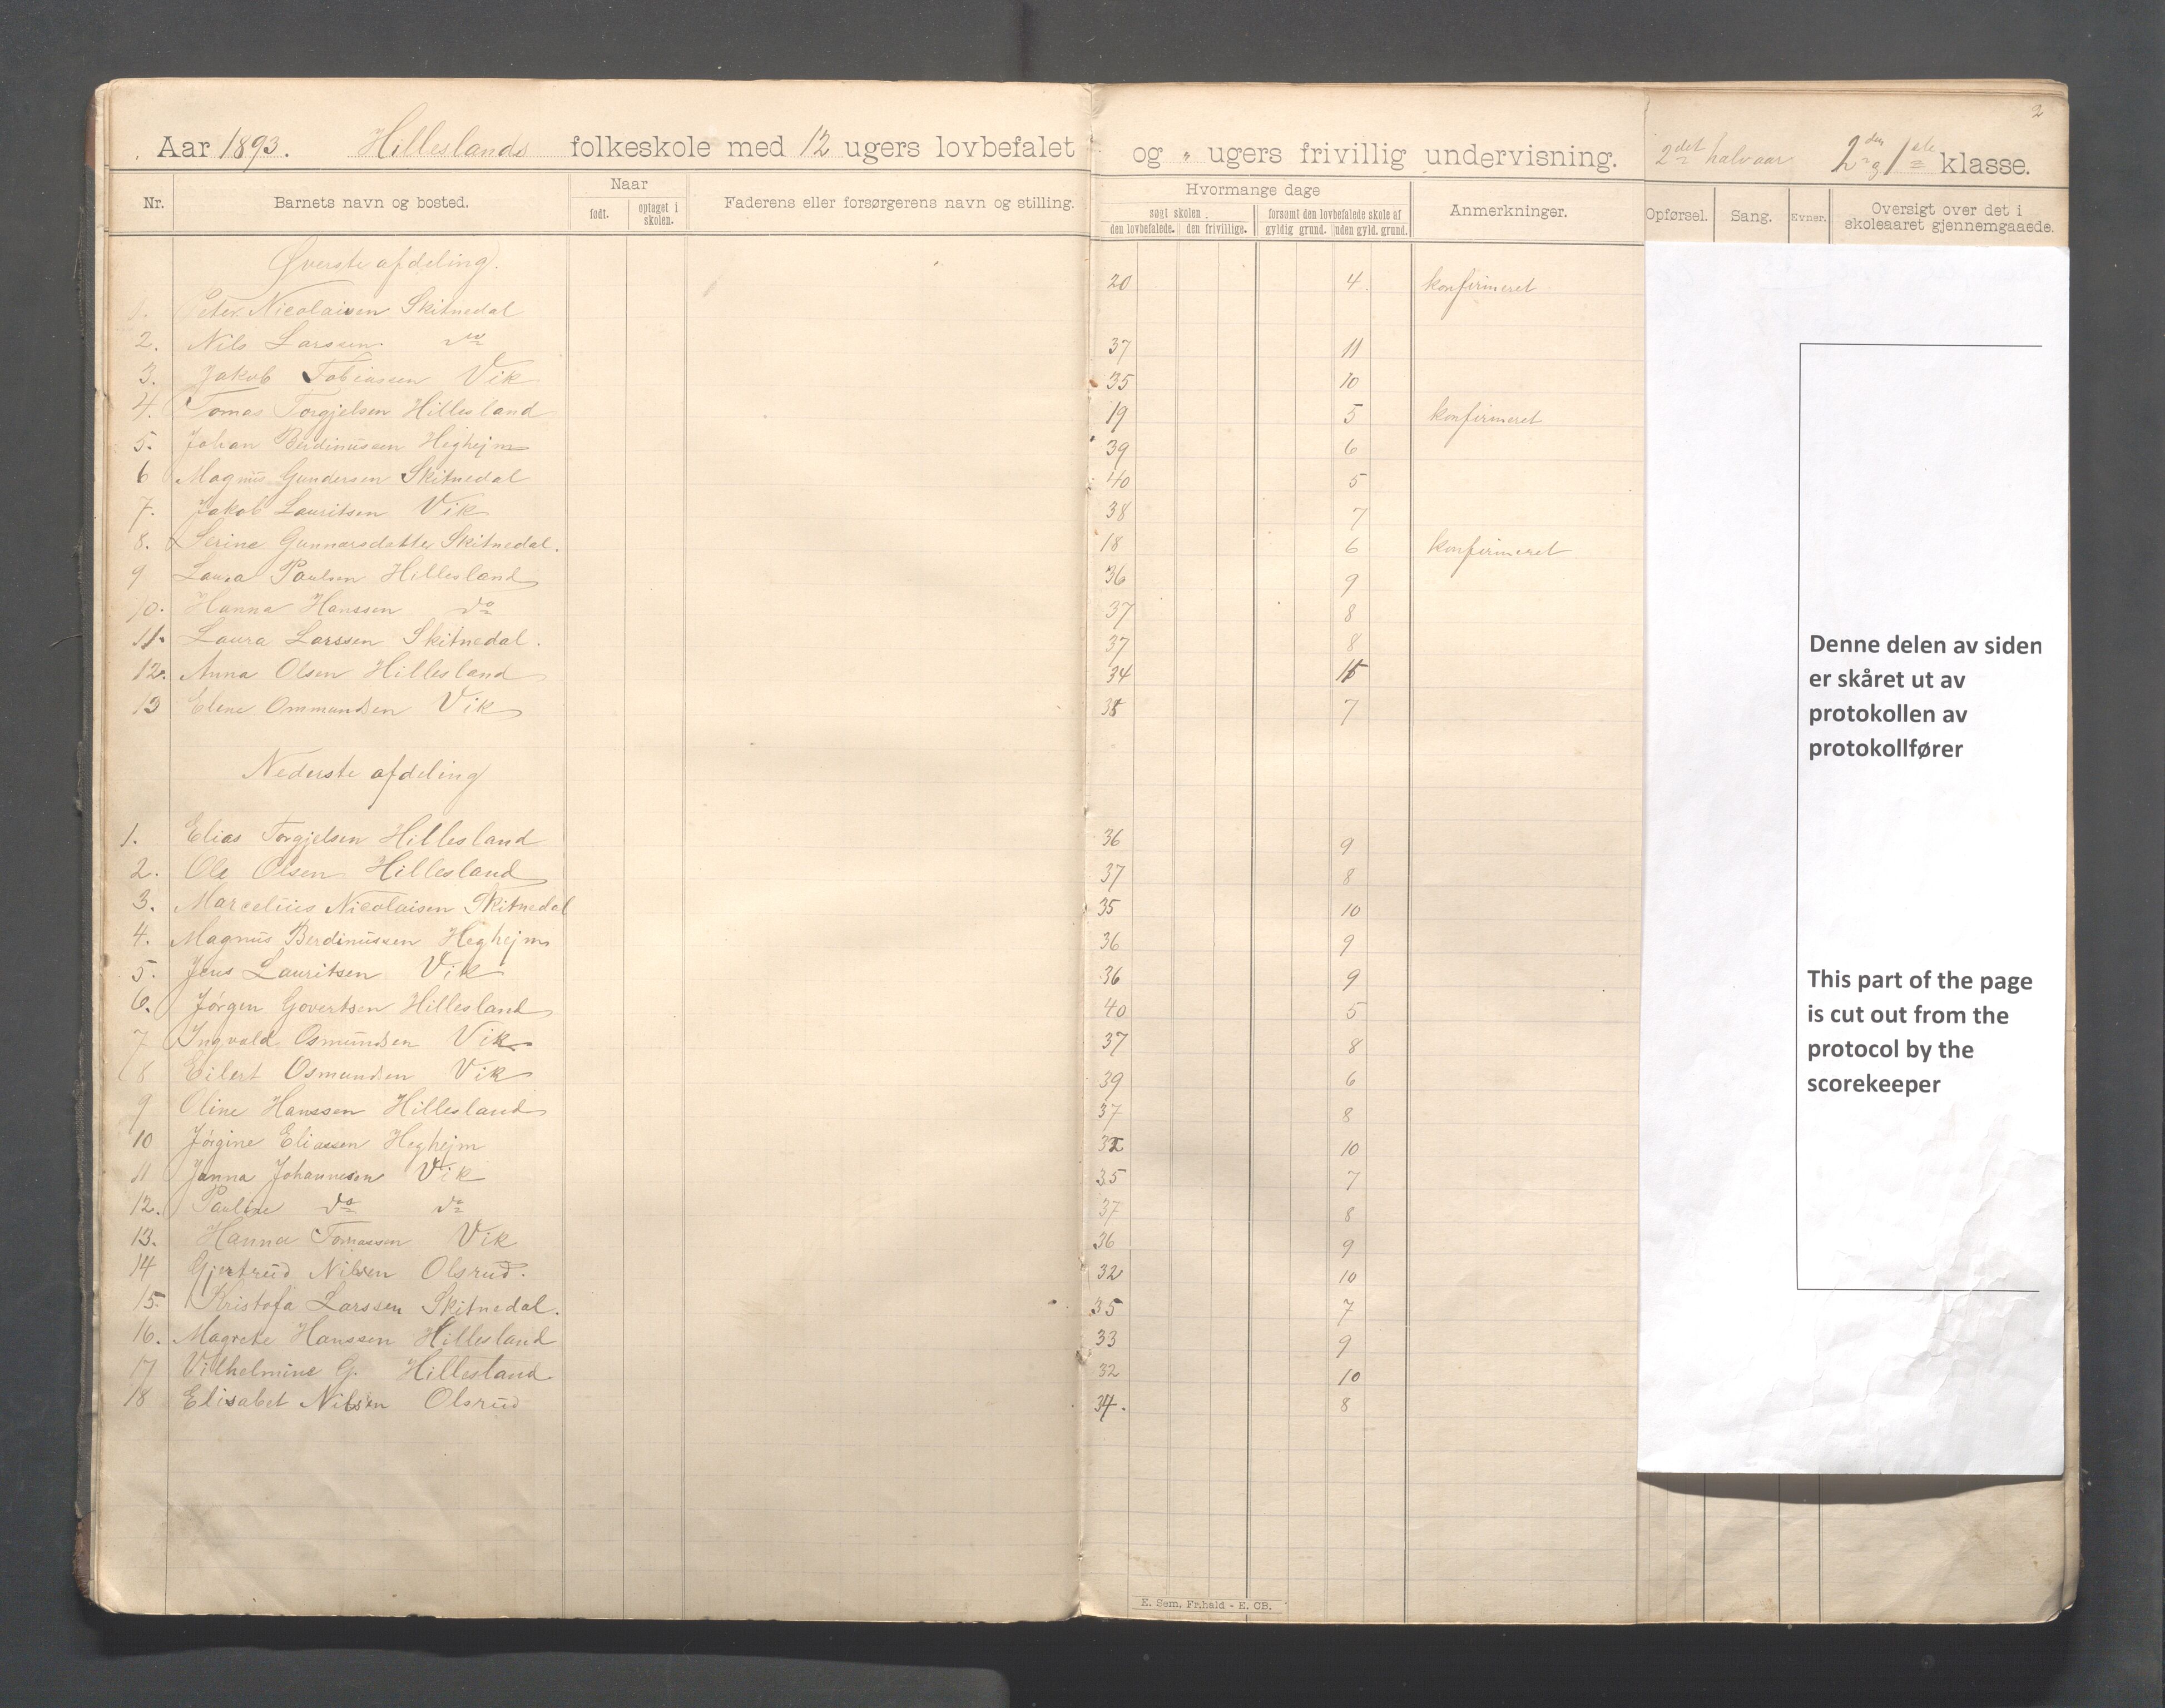 2
Aar 1893. Hilleslands folkeskole med 12 ugers lovbefalet og " ugers frivillig undervisning. 2det halvaar 2den og 1ste klasse.
Nr. Barnets navn og bosted. Naar født. optaget i skolen. Faderens eller forsørgerens navn og stilling. Hvormange dage søgt skolen. den lovbefalede. den frivillige. forsømt den lovbefalede skole af gyldig grund. uden gyld. grund. Anmerkninger. Opførsel. Sang. Evner. Oversigt over det i skoleaaret gjennemgaaede.
Øverste afdeling.
1. Peter Nicolaisen Skitnedal 20 4 konfirmeret
2. Nils Larssen do 37 11
3. Jakob Tobiassen Vik 35 10
4. Tomas Torgjelsen Hillesland 19 5 konfirmeret
5. Johan Berdinussen Heghejm 39 6
6 Magnus Gundersen Skitnedal 40 5
7. Jakob Lauritsen Vik 38 7
8. Serine Gunnarsdatter Skitnedal. 18 6 konfirmeret
9 Laura Paulsen Hillesland 36 9
10. Hanna Hanssen do 37 8
11. Laura Larssen Skitnedal. 37 8
12. Anna Olsen Hillesland 34
13 Elene Ommundsen Vik 7
Nederste afdeling
1. Elias Torgjelsen Hillesland 36 9
2. Ole Olsen Hillesland 37 8
3. Marcelius Nicolaisen Skitnedal 35 10
4. Magnus Berdinussen Heghejm 36 9
5. Jens Lauritsen Vik 36 9
6. Jørgen Govertsen Hillesland 40 5
7 Ingvald Osmundsen Vik 37 8
8 Eilert Osmundsen Vik 39 6
9 Oline Hanssen Hillesland 37 8
10 Jørgine Eliassen Heghejm 10
11 Janna Johannesen Vik 35 7
12. Pauline do do 37 8
13. Hanna Tomassen Vik 36 9
14 Gjertrud Nilsen Olsrud. 32 10
15. Kristofa Larssen Skitnedal. 35 7
16. Magrete Hanssen Hillesland 33 9
17 Vilhelmine G. Hillesland 32 10
18 Elisabet Nilsen Olsrud 34. 8
E. Sem, Fr.hald - E. CB.
Denne delen av siden
er skåret ut av
protokollen av
protokollfører
This part of the page
is cut out from the
protocol by the
scorekeeper